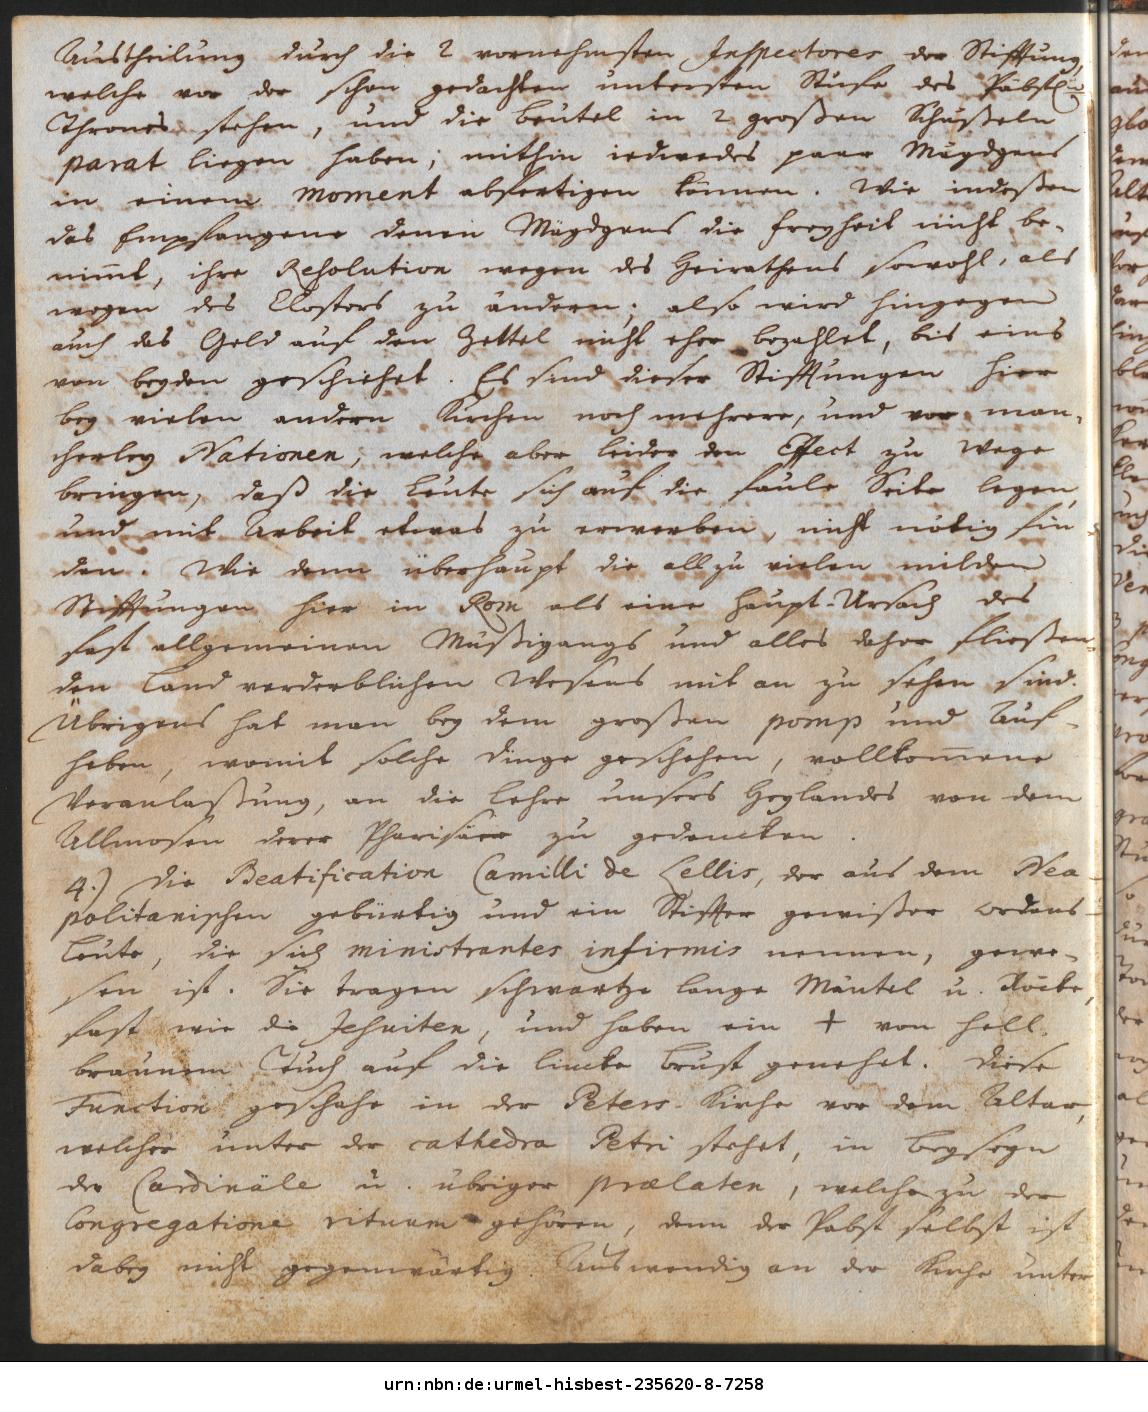 Austheilung durch die 2 vornehmsten Inspectores der Stifftung,
welche vor der schon gedachten untersten Stufe des Päbstl.
Thrones stehen, und die Beutel in 2 großen Schüßeln
parat liegen haben; mithin iedwedes paar Mägdgens
in einem moment abfertigen können. Wie indeßen
das Empfangene denen Mägdgens die Freyheit nicht be-
nimt, ihre Resolution wegen des Heirathens sowohl, als
wegen des Closters zu ändern; also wird hingegen
auch das Geld auf den Zettel nicht eher bezahlet, bis eins
von beyden geschiehet. Es sind dieser Stifftungen hier
bey vielen andern Kirchen noch mehrere, und vor man-
cherley Nationen; welche aber leider den Effect zu Wege
bringen, daß die Leute sich auf die faule Seite legen,
und mit Arbeit etwas zu erwerben, nicht nötig fin
den. Wie denn überhaupt die allzu vielen milden
Stifftungen hier in Rom als eine Haupt-Ursach des
fast allgemeinen Müßigangs und alles daher fließen-
den Land verderblichen Wesens mit an zu sehen sind.
Übrigens hat man bey dem großen pomp und Auf-
heben, womit solche Dinge geschehen, vollkomene
Veranlaßung, an die Lehre unsers Heylandes von dem
Allmosen derer Pharisäer zu gedencken.
4.) Die Beatification Camilli de Lellis, der aus dem Nea-
politanischen gebürtig und ein Stiffter gewißer Ordens-
Leute, die sich ministrantes infirmis nennen, gewe-
sen ist. Sie tragen schwartze lange Mäntel u. Röcke,
fast wie die Jesuiten, und haben ein + von hell-
braunem Tuch auf die lincke Brust genehet. Diese
Function geschahe in der Peters-Kirche vor dem Altar,
welcher unter der cathedra Petri stehet, in Beyseyn
der Cardinäle u. übriger prælaten, welche zu der
Congregatione rituum gehören, denn der Pabst selbst ist
dabey nicht gegenwärtig. Auswendig an der Kirche unter
urn:nbn:de:urmel-hisbest-235620-8-7258